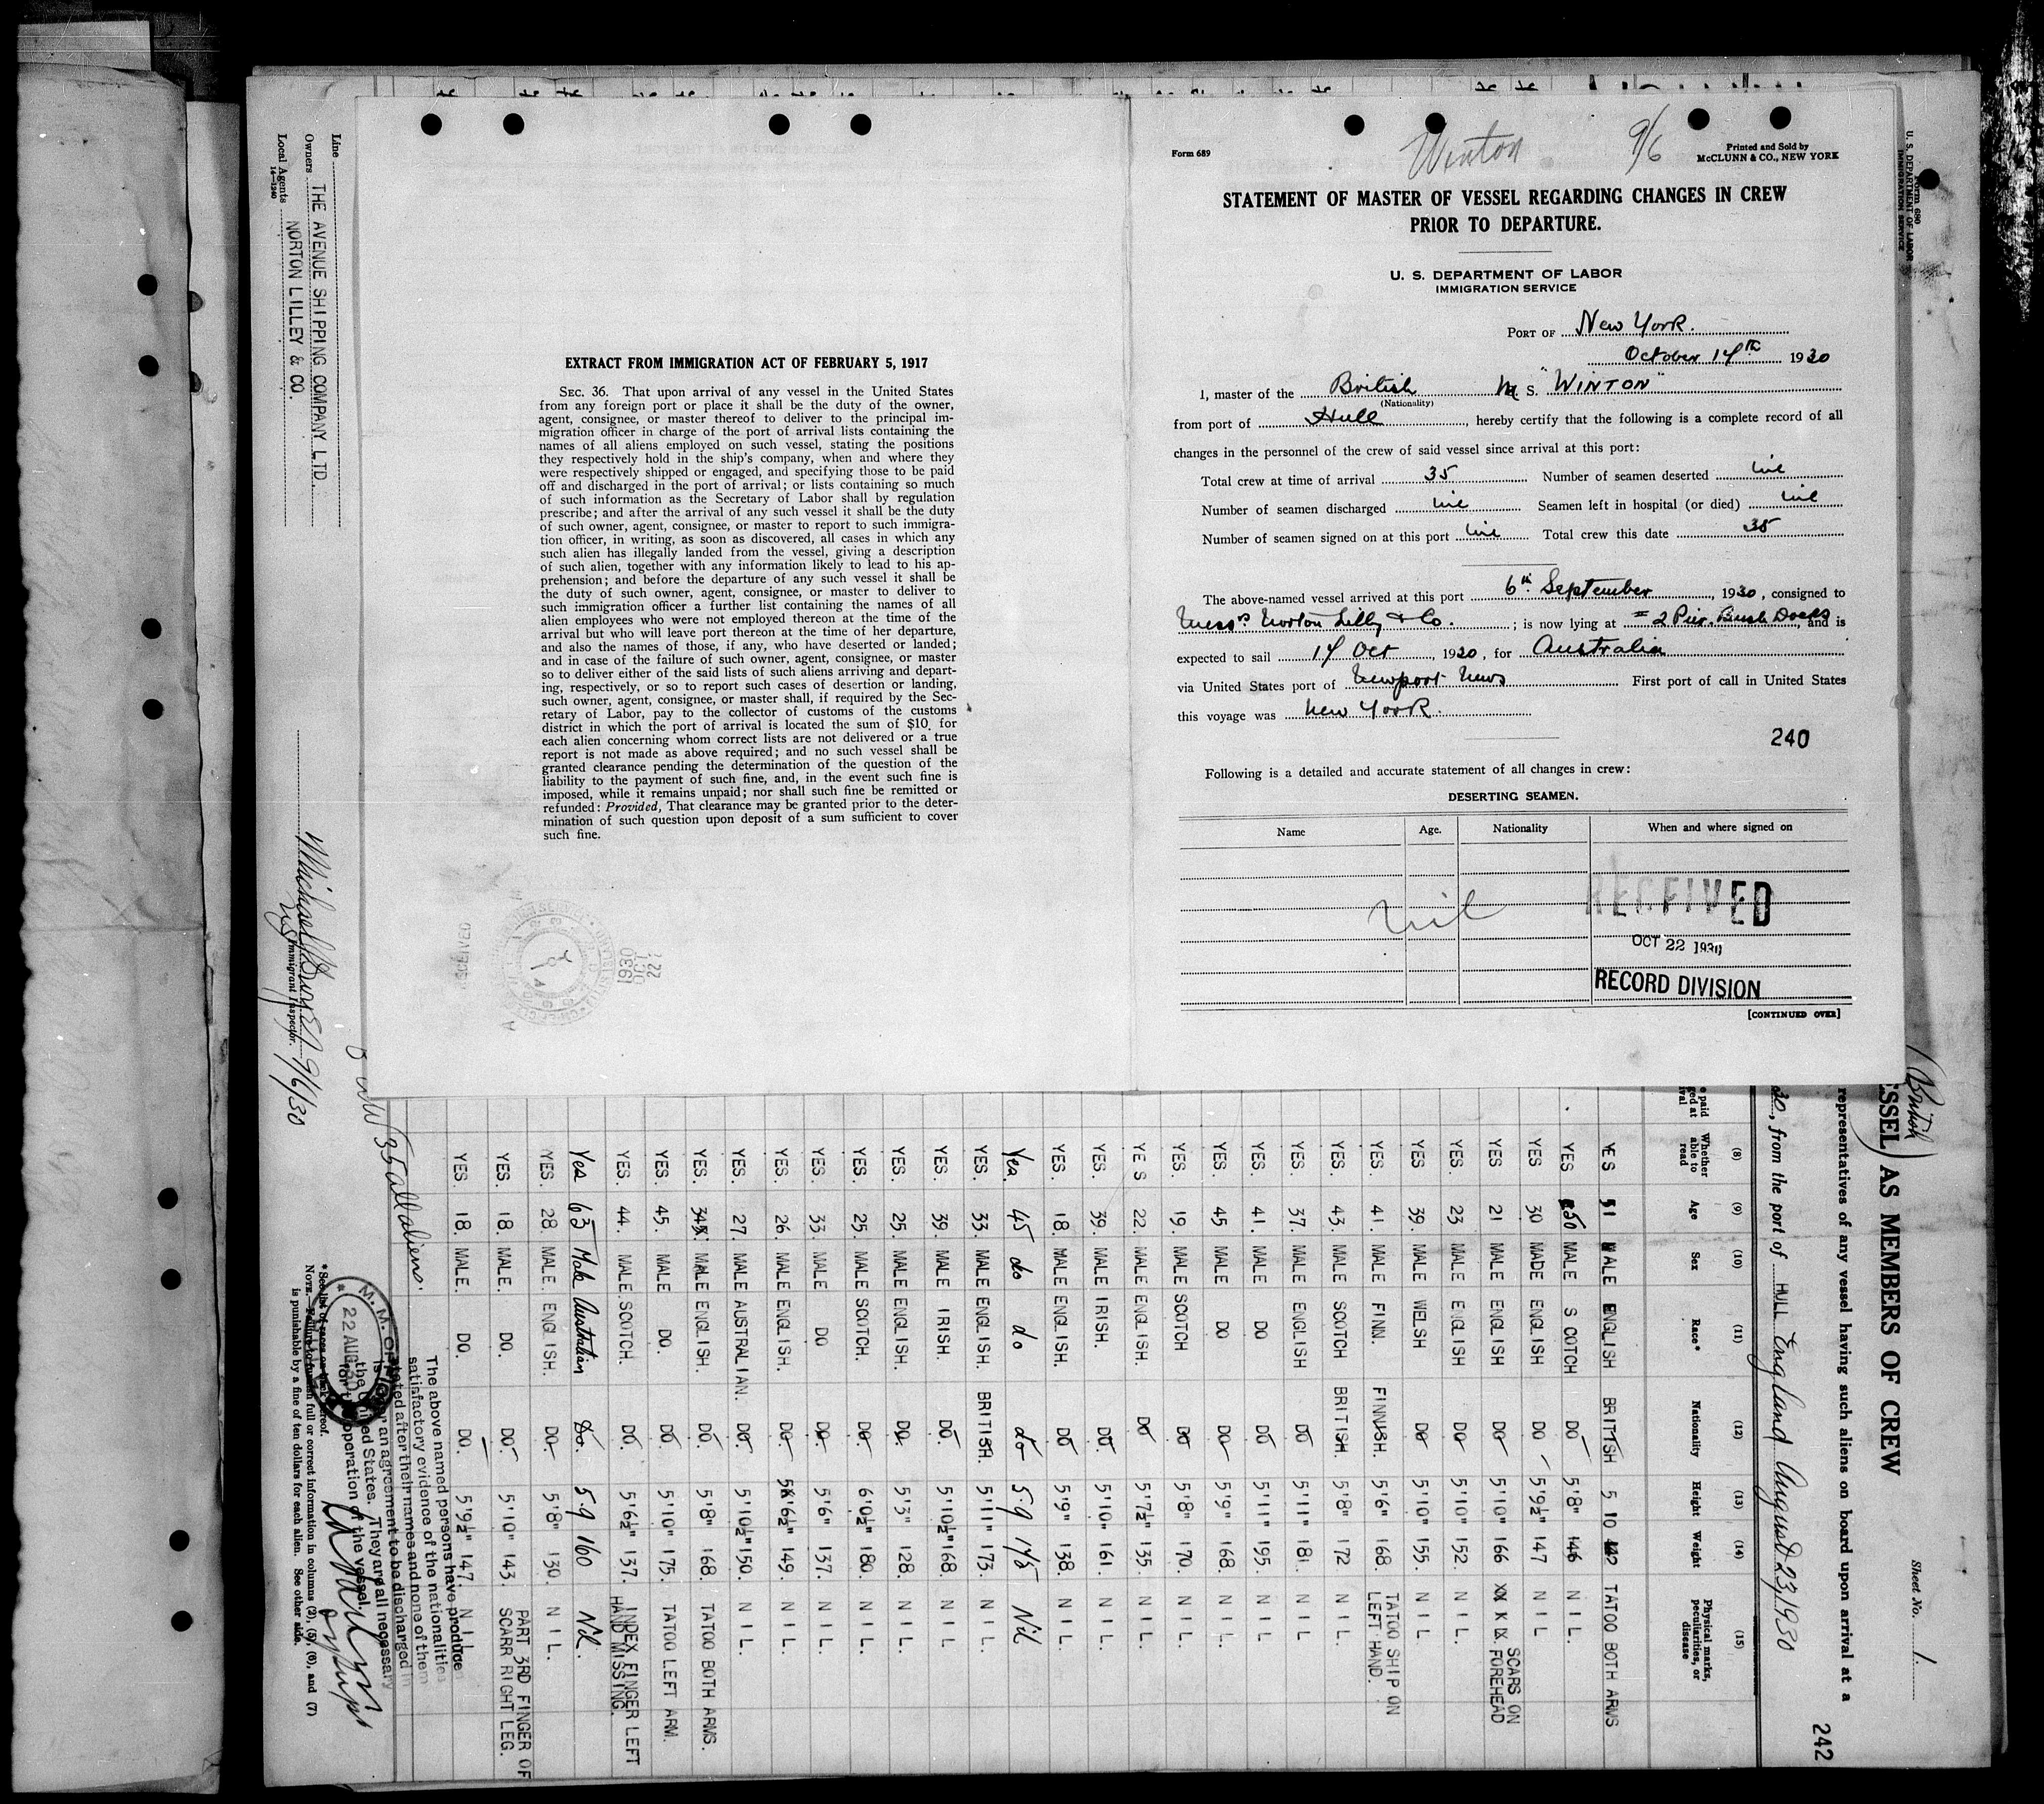 EXTRACT FROM IMMIGRATION ACT OF FEBRUARY 5, 1917
SEC. 36. That upon arrival of any vessel in the United States
from any foreign port or place it shall be the duty of the owner,
agent, consignee, or master thereof to deliver to the principal im-
migration officer in charge of the port of arrival lists containing the
names of all aliens employed on such vessel, stating the positions
they respectively hold in the ship's company, when and where they
were respectively shipped or engaged, and specifying those to be paid
off and discharged in the port of arrival; or lists containing so much
of such information as the Secretary of Labor shall by regulation
prescribe; and after the arrival of any such vessel it shall be the duty
of such owner, agent, consignee, or master to report to such immigra-
tion officer, in writing, as soon as discovered, all cases in which any
such alien has illegally landed from the vessel, giving a description
of such alien, together with any information likely to lead to his ap-
prehension; and before the departure of any such vessel it shall be
the duty of such owner, agent, consignee, or master to deliver to
such immigration officer a further list containing the names of all
alien employees who were not employed thereon at the time of the
arrival but who will leave port thereon at the time of her departure,
and also the names of those, if any, who have deserted or landed;
and in case of the failure of such owner, agent, consignee, or master
so to deliver either of the said lists of such aliens arriving and depart-
ing, respectively, or so to report such cases of desertion or landing,
such owner, agent, consignee, or master shall, if required by the Sec-
retary of Labor, pay to the collector of customs of the customs
district in which the port of arrival is located the sum of $10 for
each alien concerning whom correct lists are not delivered or a true
report is not made as above required; and no such vessel shall be
granted clearance pending the determination of the question of the
liability to the payment of such fine, and, in the event such fine is
imposed, while it remains unpaid; nor shall such fine be remitted or
refunded: Provided, That clearance may be granted prior to the deter-
mination of such question upon deposit of a sum sufficient to cover
such fine.
RECEIVED
1930 OCT 22
Form 689
Winton 9/6
Printed and Sold by
McCLUNN & CO., NEW YORK
STATEMENT OF MASTER OF VESSEL REGARDING CHANGES IN CREW
PRIOR TO DEPARTURE.
U. S. DEPARTMENT OF LABOR
IMMIGRATION SERVICE
PORT OF New York.
October 14th 1930
I, master of the British M. S. "WINTON"
(Nationality)
from port of Hull, hereby certify that the following is a complete record of all
changes in the personnel of the crew of said vessel since arrival at this port:
Total crew at time of arrival 35 Number of seamen deserted nil
Number of seamen discharged nil Seamen left in hospital (or died) nil
Number of seamen signed on at this port nil Total crew this date 35
The above-named vessel arrived at this port 6th September, 1930, consigned to
Messrs Norton Lilly & Co.; is now lying at #2 Pier. Bush Docks, and is
expected to sail 14 Oct, 1930, for Australia
via United States port of Newport News First port of call in United States
this voyage was New York.
240
Following is a detailed and accurate statement of all changes in crew:
DESERTING SEAMEN.
Name Age. Nationality When and where signed on
nil
RECEIVED
OCT 22 1930
RECORD DIVISION
[CONTINUED OVER]
Line
Owners THE AVENUE SHIPPING COMPANY LTD.
Local Agents NORTON LILLEY & CO.
14-1240
Immigrant Inspector.
9/6/30
Form 680
U. S. DEPARTMENT OF LABOR
IMMIGRATION SERVICE
(British
ESSEL) AS MEMBERS OF CREW
Sheet No. 1.
representatives of any vessel having such aliens on board upon arrival at a
242
30, from the port of HULL England August 23, 1930
(8) (9) (10) (11) (12) (13) (14) (15)
Whether able to read Age Sex Race* Nationality Height Weight Physical marks, peculiarities, or disease
YES 51 MALE ENGLISH BRITISH 5 10 TATOO BOTH ARMS
YES 50 MALE SCOTCH DO 5'8" 146 NIL.
YES 30 MADE ENGLISH DO 5'9½" 147 NIL
YES 21 MALE ENGLISH DO 5'10" 166 SCARS ON FOREHEAD
YES. 23 MALE ENGLISH DO 5'10" 152. NIL.
YES. 39. MALE WELSH DO 5'10" 155. NIL.
YES. 41. MALE FINN. FINNUSH. 5'6" 168. TATOO SHIP ON LEFT HAND.
YES. 43. MALE SCOTCH BRITISH. 5'8" 172 NIL.
YES. 37. MALE ENGLISH DO 5'11" 181. NIL
YES. 41. MALE DO DO 5'11" 195. NIL.
YES. 45 MALE DO DO 5'9" 168. NIL.
YES. 19. MALE SCOTCH DO 5'8" 170. NIL.
YES 22 MALE ENGLISH. DO 5'7½" 135. NIL.
YES. 39. MALE IRISH. DO 5'10" 161. NIL.
YES. 18. MALE ENGLISH. DO 5'9" 138. NIL.
Yes. 45 do do do 5.9 Nil
YES. 33. MALE ENGLISH. BRITISH. 5'11" 173. NIL.
YES. 39. MALE IRISH. DO. 5'10½" 168. NIL.
YES. 25. MALE ENGLISH. DO. 5'3" 128. NIL.
YES. 25. MALE SCOTCH. DO. 6'0½" 180. NIL.
YES. 33. MALE DO DO. 5'6" 137. NIL.
YES. 26. MALE ENGLISH. DO. 5'6½" 149. NIL.
YES. 27. MALE AUSTRALIAN. DO. 5'10½" 150. NIL.
YES. 34. MALE ENGLISH. DO. 5'8" 168. TATOO BOTH ARMS.
YES. 45. MALE DO. DO. 5'10" 175. TATOO LEFT ARM.
YES. 44. MALE. SCOTCH. DO. 5'6½" 137. INDEX FINGER LEFT HAND MISSING.
Yes 63 Male Australian Do. 5.9 160 Nil.
YES. 28. MALE. ENGLISH. DO. 5'8" 130. NIL.
YES. 18. MALE. DO. DO. 5'10" 143. PART 3RD FINGER OF SCARR RIGHT LEG.
YES. 18. MALE. DO. DO. 5'9½" 147. NIL
35 all aliens.
The above named persons have produced
satisfactory evidence of the nationalities
stated after their names and none of them
is under an agreement to be discharged in
the United States. They are all necessary
for the operation of the vessel.
M. M. OFFICE
22 AUG 30
*See list of races on back hereof.
NOTE.—Failure to furnish full or correct information in columns (2), (5), (6), and (7)
is punishable by a fine of ten dollars for each alien. See other side.